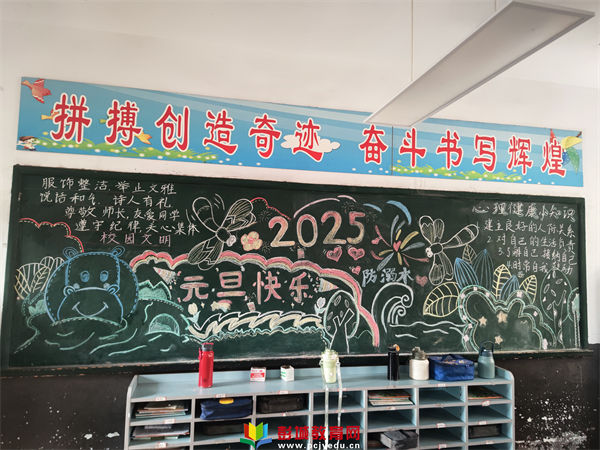 拼搏创造奇迹 奋斗书写辉煌
服饰整洁,举止文雅
说话和气,诗人有礼
尊敬师长,友爱同学
遵守纪律,关心集体
校园文明
2025
元旦快乐
防溺水
心理健康小知识
建立良好的人际关系
2.对自己的生活负责
3.了解自己 接纳自己
彭城教育网
www.pcjyedu.cn